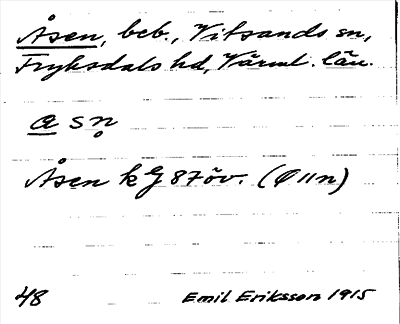 Åsen, beb., Vitsands sn,
Fryksdals hd, Värml. län.
a s n̥
Åsen k G 87 öv. (Q 11 n)
48 Emil Eriksson 1915